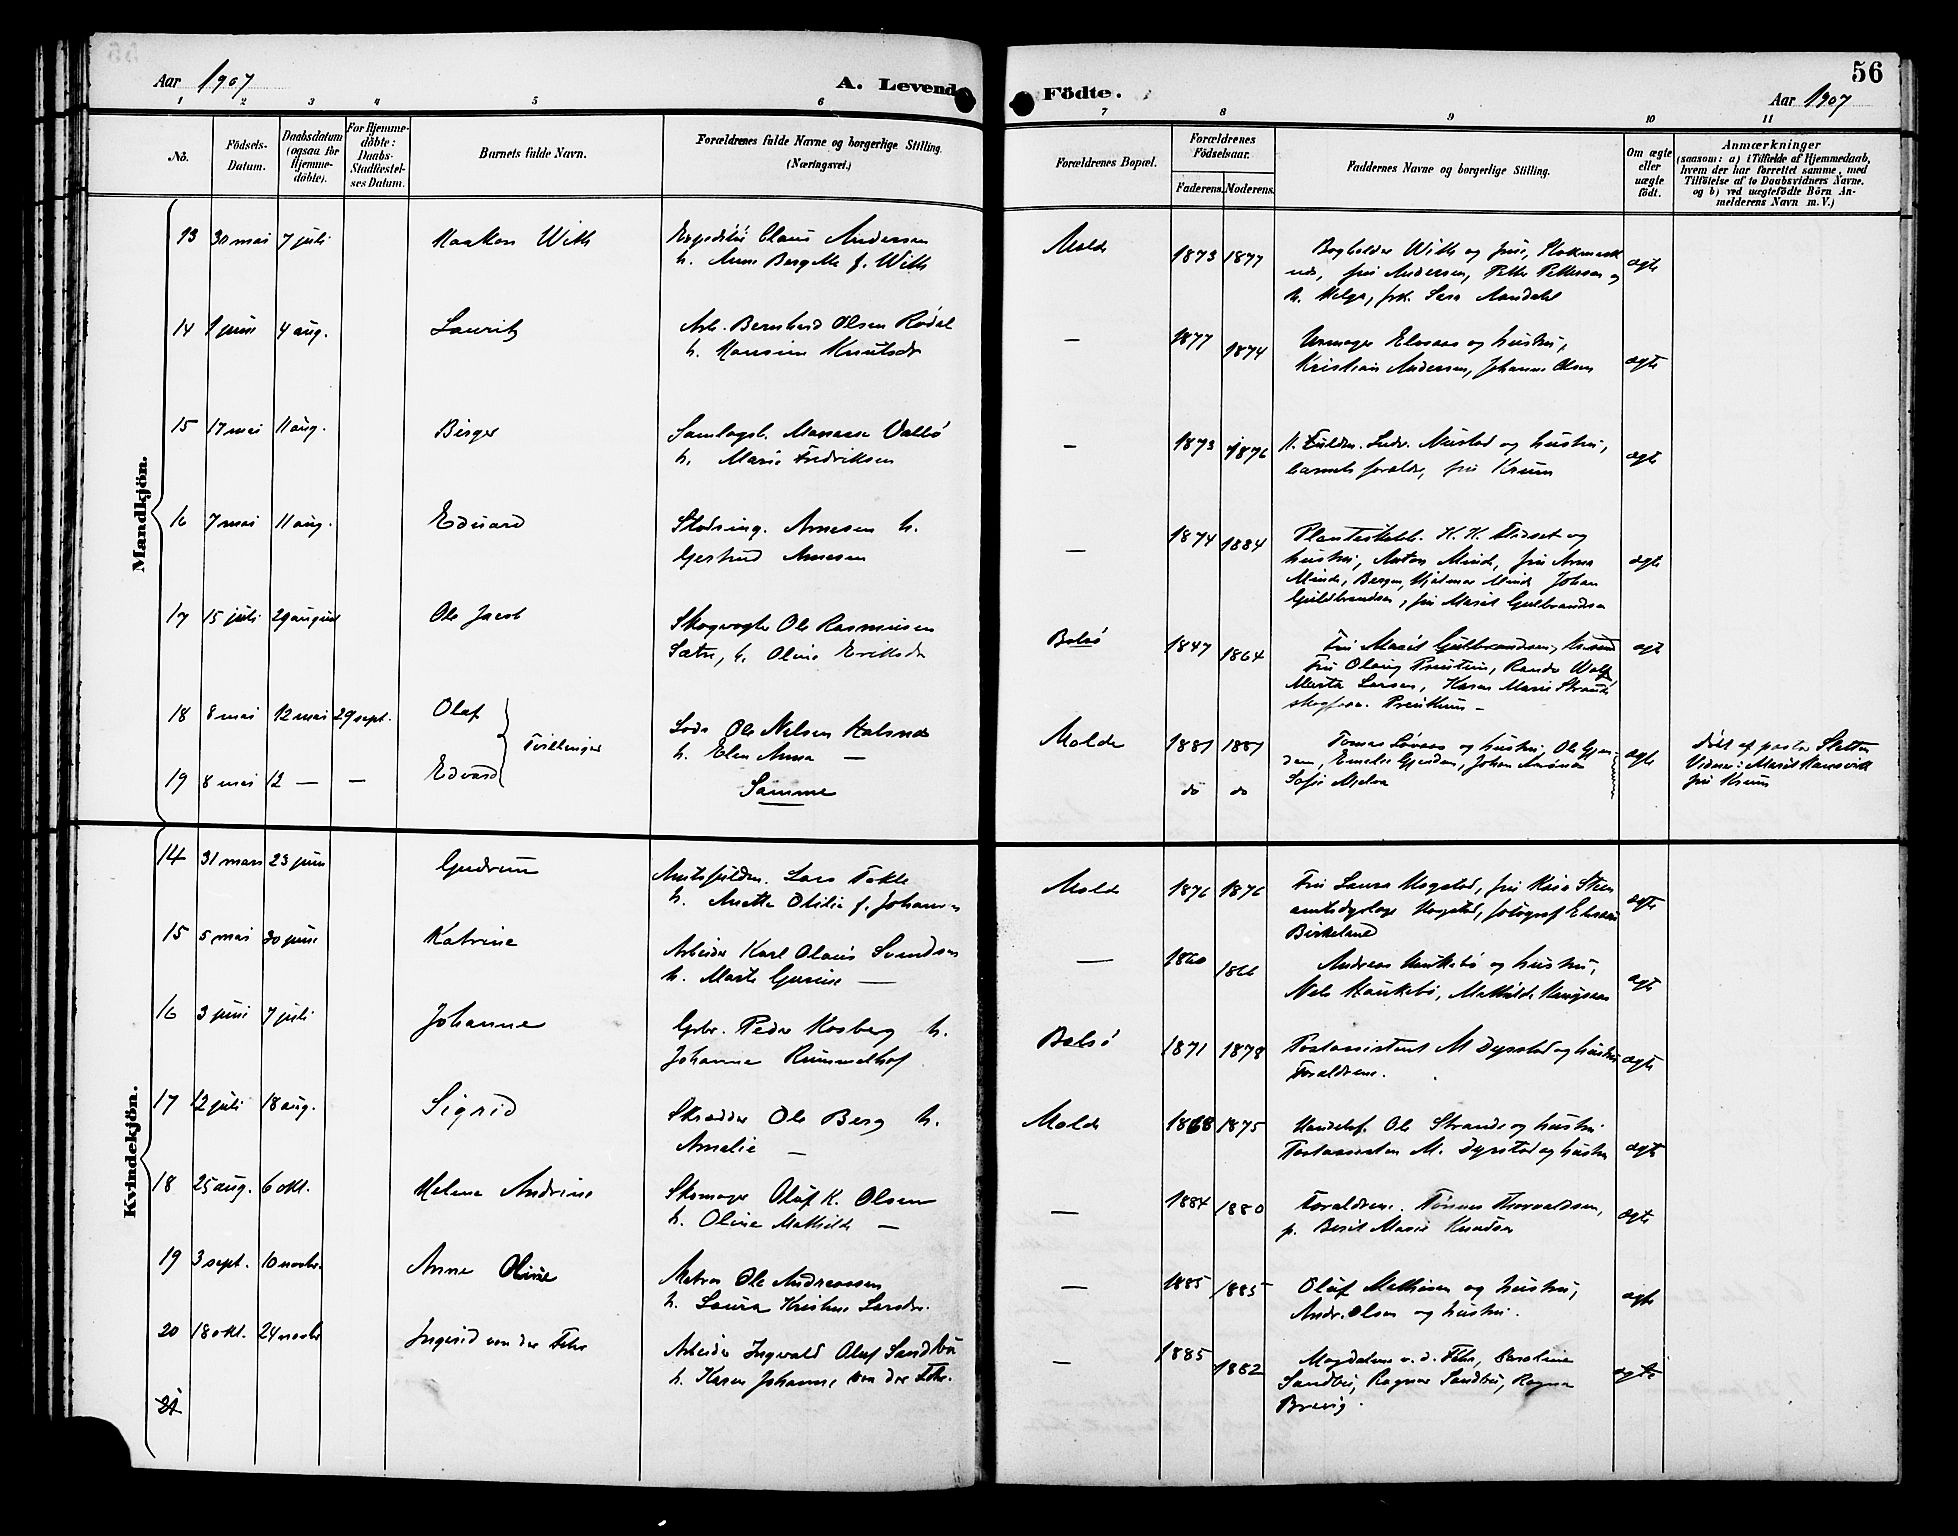 Aar 1907
A. Levend
Födte.
Aar 1907
56
1 2 3 4 5 6
7 8 9 10 11
No.
Födsels-
Datum.
Daabsdatum
(ogsaa for
Hjemme-
döbte).
For Hjemme-
döbte:
Daabs-
Stadfæstel-
ses Datum.
Barnets fulde Navn.
Forældrenes fulde Navne og borgerlige Stilling.
(Næringsvei.)
Forældrenes Bopæl.
Forældrenes
Födselsaar.
Faderens.
Moderens.
Faddernes Navne og borgerlige Stilling.
Om ægte
eller
uægte
födt.
Anmærkninger
(saasom: a) i Tilfælde af Hjemmedaab,
hvem der har forrettet samme, med
Tilföielse af to Daabsvidners Navne,
og b) ved uægtefödte Börn An-
melderens Navn m. V.)
Mandkjön.
13 30 mai 7 juli Haakon With
Claus Andersen
h. Anna Bergitte f. With
Molde 1873 1877
Bogholder With og frue,
fru Andersen, Petter Pettersen og
h. Helga, frk. Sara Aandahl
ægte
14 1 juni 4 aug. Laurits
Arb. Bernhard Olsen Rødal
h. Hansine Knutsdr
— 1877 1874
Urmager Elvsaas og hustru,
Kristian Andersen, Johanne Olsen
ægte
15 17 mai 11 aug. Birger
Samlagsb. Manasse Valbö
h. Marie Fredriksen
— 1873 1876
Nustad og hustru,
barnets foreldr, fru Krum
ægte
16 7 mai 11 aug. Edvard
Stadsing. Arnesen h.
Gjertrud Arnesen
— 1874 1884
H. K. og
hustru, Anton Minde, fru Anna
Minde, Bergen, Hjalmar Minde Johan
Guldbrandsen, fru Marit Gulbrandsen
ægte
17 15 juli 29 august Ole Jacob
Skogvogter Ole Rasmussen
Sætre, h. Oline Eriksdr
Bolsö 1847 1864
Fru Marit Gulbrandsen,
Fru Olaug
Marta Larsen, Karen Marie Strand
ægt
18 8 mai 12 mai 29 sept. Olaf
Tvillinger
Lods Ole Nelsen
h. Elen Anna —
Molde 1881 1881
Tomas og hustru, Ole Gjen-
dem, Emelie Gjendem, Johan
Sofie Mjelva
ægte
Döbt af pastor Sletten
Vidner: Marit
fru Krum
19 8 mai 12 — — Edvard
Samme
do do
Kvindekjön.
14 31 mars 23 juni Gudrun
Amtsfuldm. Lars Tokle
h. Anette Otilie f. Johansen
Molde 1876 1876
Fru Laura Hogstad, fru Kaia
amtsdyrlæge Hogstad, fotograf
Birkeland
ægte
15 5 mai 30 juni Katrine
Arbeider Karl Olaus Svendsen
h. Marte Gurine —
— 1860 1866
Andreas Haukebö og hustru,
Nels Haukebö, Mathilde
ægte
16 3 juni 7 juli Johanne
Gbr. Peder Kosberg h.
Johanna Rummelhof
Bolsö 1871 1878
Postassistent M Dyrstad og hustru
Forældrene.
ægte
17 12 juli 18 aug. Sigrid
Skrædder Ole Berg h.
Amalie —
Molde 1868 1875
Handelsf. Ole Strande og hustru
Postassistent M. Dyrstad og hustru
ægte
18 25 aug. 6 okt. Helene Andrine
Skomager Olaf K. Olsen
h. Oline Mathilde —
— 1884 1880
Forældrene. Tønnes Thorvaldsen,
p. Berit Marie Knudsen
ægte
19 3 sept. 10 novbr. Anne Oline
Matros Ole Andreassen
h. Laura Kristine Larsdr.
— 1885 1885
Oluf Mathisen og hustru,
Andr. Olsen og hustru.
ægte
20 18 okt. 24 novbr Ingerid von der Fehr
Arbeider Ingvald Oluf Sandbu
h. Karen Johanne von der Fehr.
— 1885 1882
Magdalene v. d. Fehr, Caroline
Sandbu, Ragnar Sandbu, Ragna
Brevig.
ægte
21